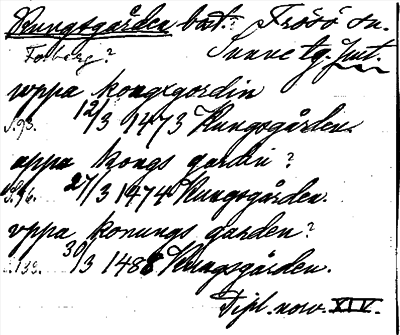 Kungsgården bat.? Frösö sn.
Forberg? Sunne tg. Jmt.
uppa kongxgordin
s. 93. 12/3 1473 Kungsgården.
appa kongs gardin?
s. 96. 27/3 1474 Kungsgården.
uppa konungs garden?
s. 132. 30/3 1488 Kungsgården.
Dipl. norv. XIV.